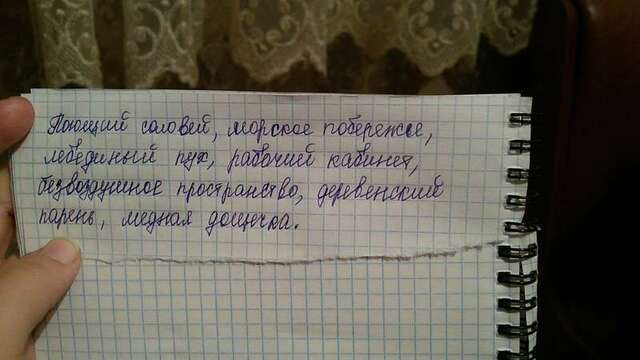 Поющий соловей, морское побережье,
лебединый пух, рабочий кабинет,
безвоздушное пространство, деревенский
парень, медная дощечка.